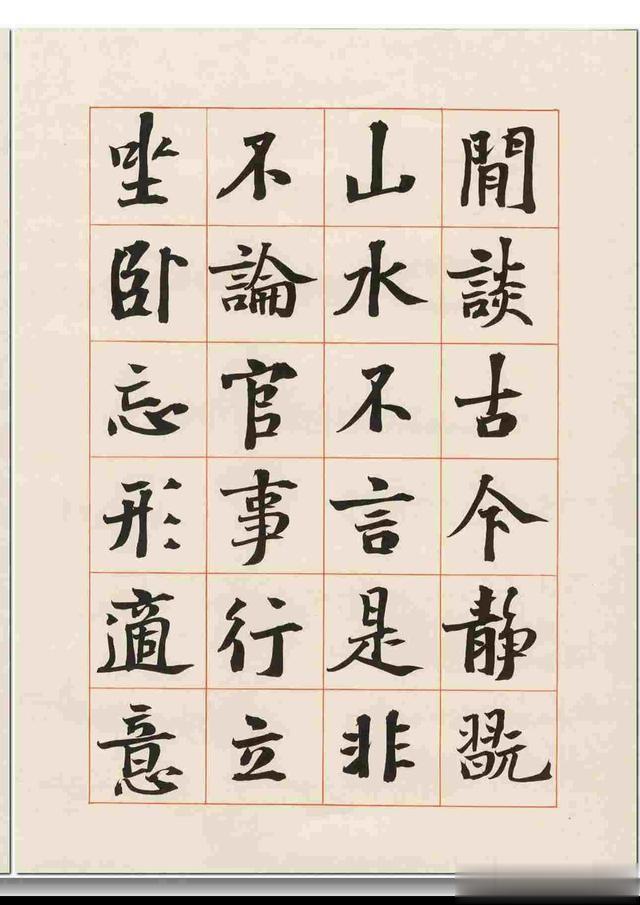 閒談古今静翫
山水不言是非
不論官事行立
坐卧忘形適意